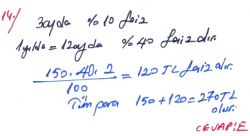 14.) 3 ayda % 10 faiz
1 yılda = 12 ayda % 40 faiz alır.
150.40.2
100
= 120 TL faiz alır.
Tüm para 150 + 120 = 270 TL
olur.
CEVAP: E